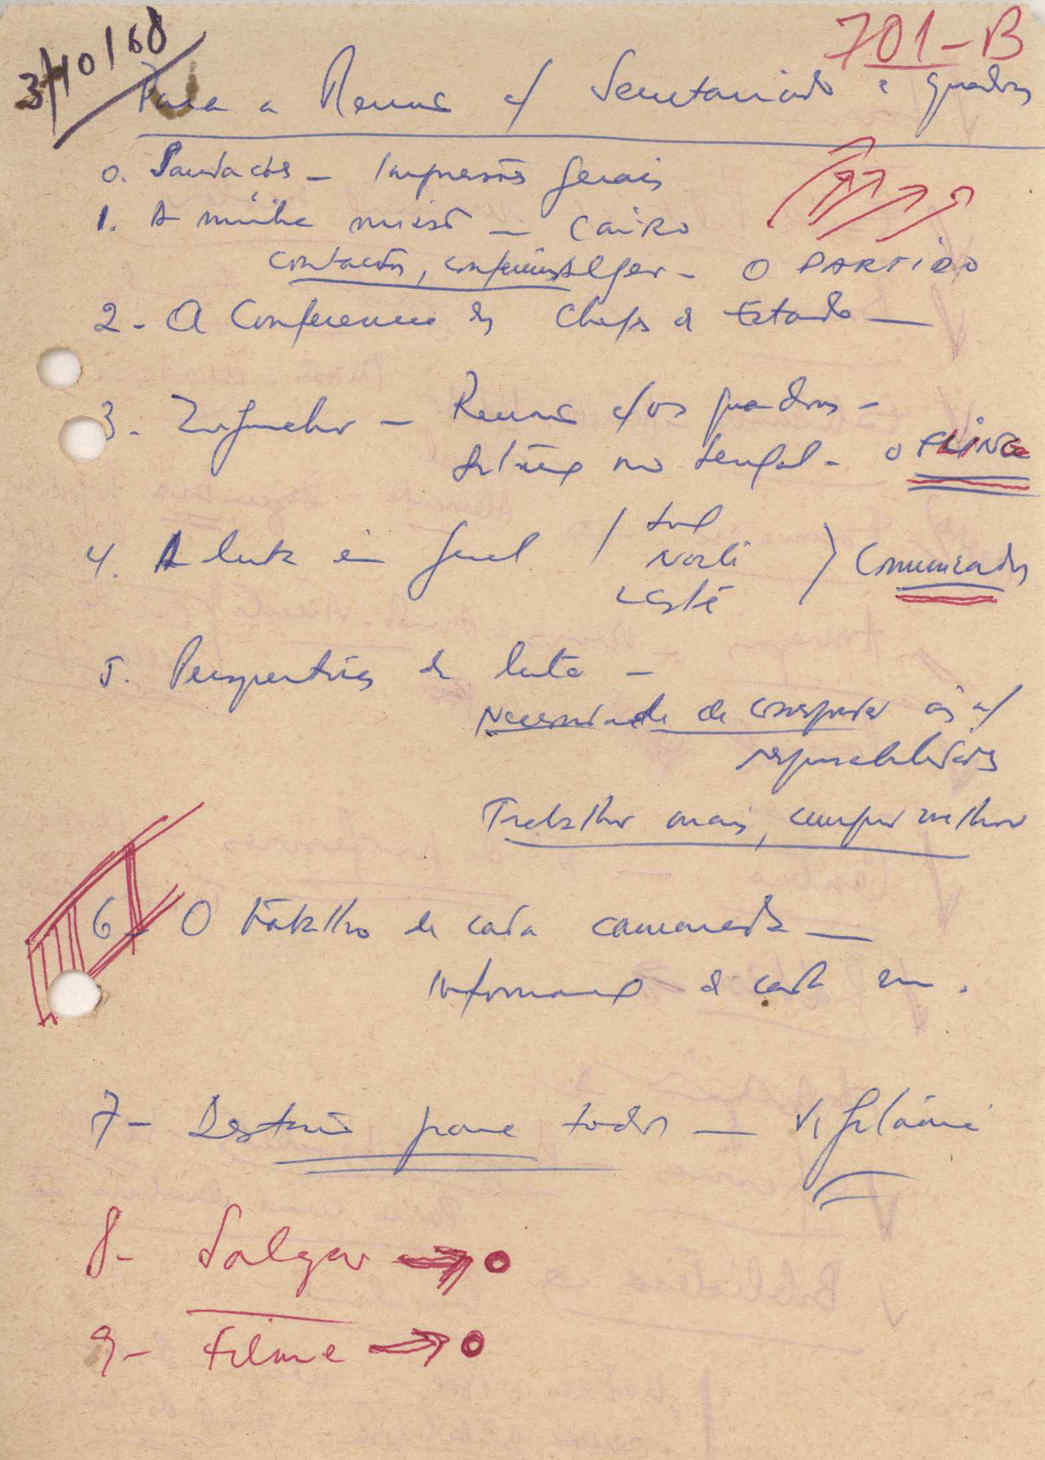 3/10/68
701-B
Para a Reunião c/ Secretariado e quadros
0. Saudações - Impressões gerais
1. A minha missão - Cairo
contactos, Alger - O PARTIDO
2 - A Conferencia dos Chefes de Estado -
3. - Ziguinchor - Reunião c/os quadros -
Situação no Senegal - O FLING
4. A luta em geral / Sul
Norte
Leste ) Comunicados
5. Perspectivas da luta -
Necessidade de corresponder às n/
responsabilidades
Trabalhar mais, cumprir melhor
6 - O trabalho de cada camarada -
Informação de cada um.
7 - Destino para todos - Vigilância
8 - Salgar → o
9 - Filme → o